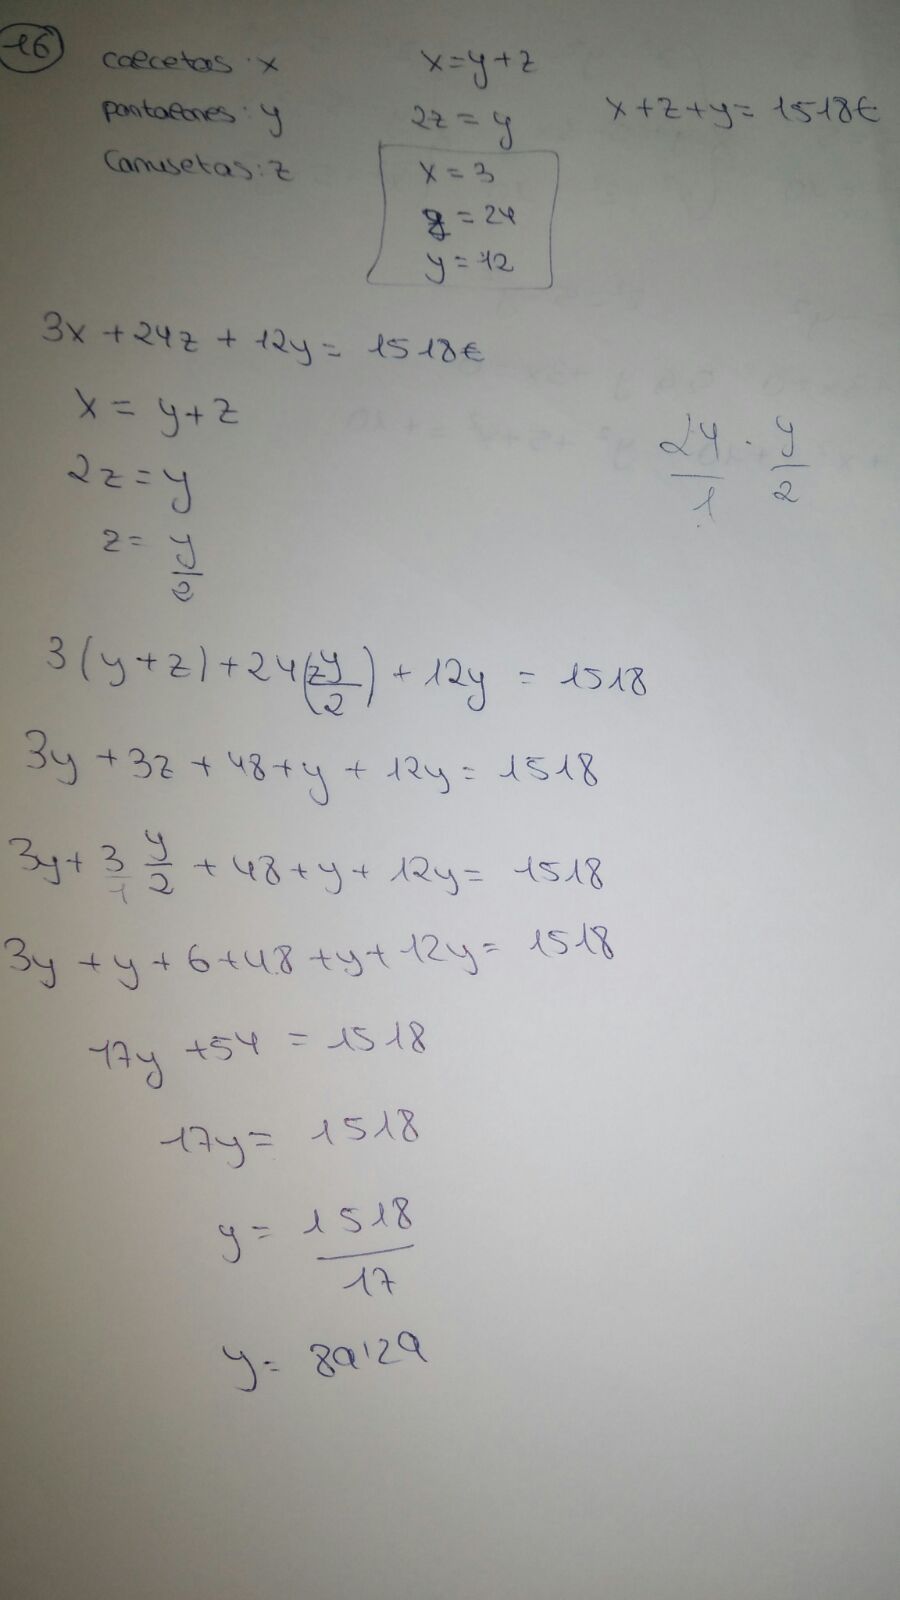 16
calcetas: x x=y+z
pantalones: y 2z = y x+z+y= 1518€
Camisetas: z x = 3
z = 24
y = 12
3x + 24z + 12y = 1518€
x = y+z
2z = y 24/1 · y/2
z = y/2
3(y+z) + 24(zy/2) + 12y = 1518
3y + 3z + 48 + y + 12y = 1518
3y + 3/1 y/2 + 48 + y + 12y = 1518
3y + y + 6 + 48 + y + 12y = 1518
17y + 54 = 1518
17y = 1518
y = 1518/17
y = 89'29